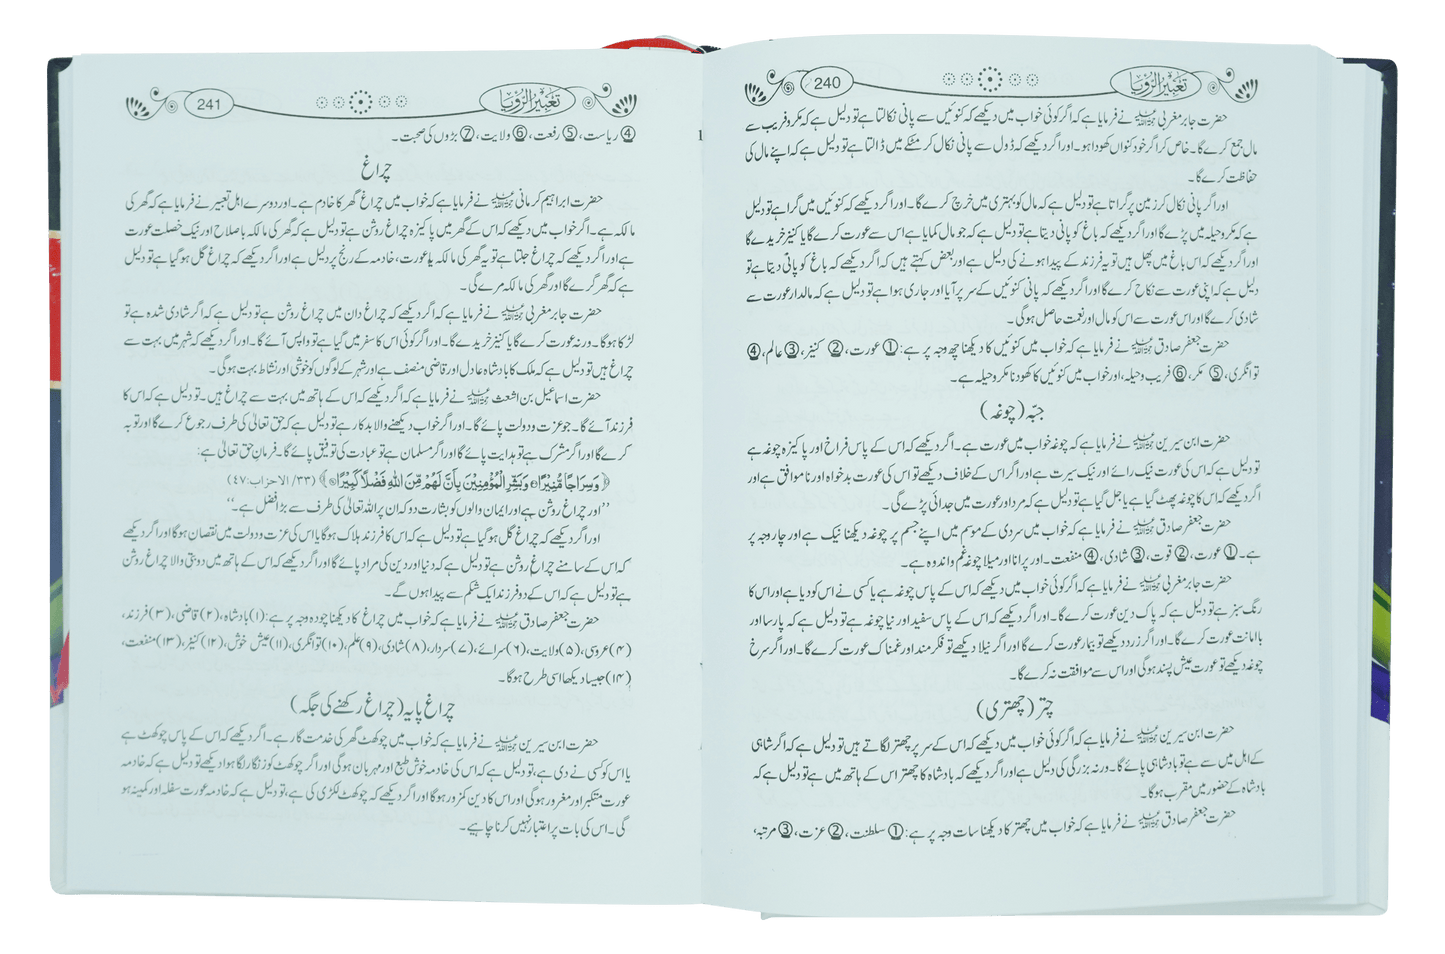 240
تعبیر الرؤیا
حضرت جابر مغربی رحمۃ اللہ علیہ نے فرمایا ہے کہ اگر کوئی خواب میں دیکھے کہ کنوئیں سے پانی نکالتا ہے تو دلیل ہے کہ مکر و فریب سے
مال جمع کرے گا۔ خاص کر اگر خود کنواں کھودا ہو۔ اور اگر دیکھے کہ ڈول سے پانی نکال کر مٹکے میں ڈالتا ہے تو دلیل ہے کہ اپنے مال کی
حفاظت کرے گا۔
اور اگر پانی نکال کر زمین پر گراتا ہے تو دلیل ہے کہ مال کو بہتری میں خرچ کرے گا۔ اور اگر دیکھے کہ کنوئیں میں گرا ہے تو دلیل
ہے کہ مکر و حیلہ میں پڑے گا اور اگر دیکھے کہ باغ کو پانی دیتا ہے تو دلیل ہے کہ جو مال کمایا ہے اس سے عورت کرے گا یا کنیز خریدے گا
اور اگر دیکھے کہ اس باغ میں پھل ہیں تو یہ فرزند کے پیدا ہونے کی دلیل ہے اور بعض کہتے ہیں کہ اگر دیکھے کہ باغ کو پانی دیتا ہے تو
دلیل ہے کہ اپنی عورت سے نکاح کرے گا اور اگر دیکھے کہ پانی کنوئیں کے سر پر آیا اور جاری ہوا ہے تو دلیل ہے کہ مالدار عورت سے
شادی کرے گا اور اس عورت سے اس کو مال اور نعمت حاصل ہو گی۔
حضرت جعفر صادق رحمۃ اللہ علیہ نے فرمایا ہے کہ خواب میں کنوئیں کا دیکھنا چھ وجہ پر ہے: ① عورت، ② کنیز، ③ عالم، ④
توانگری، ⑤ مکر، ⑥ فریب و حیلہ، اور خواب میں کنوئیں کا کھودنا مکر و حیلہ ہے۔
جبّہ (چوغہ)
حضرت ابن سیرین رحمۃ اللہ علیہ نے فرمایا ہے کہ چوغہ خواب میں عورت ہے۔ اگر دیکھے کہ اس کے پاس فراخ اور پاکیزہ چوغہ ہے
تو دلیل ہے کہ اس کی عورت نیک رائے اور نیک سیرت ہے اور اگر اس کے خلاف دیکھے تو اس کی عورت بدخواہ اور ناموافق ہے اور
اگر دیکھے کہ اس کا چوغہ پھٹ گیا ہے یا جل گیا ہے تو دلیل ہے کہ مرد اور عورت میں جدائی پڑے گی۔
حضرت جعفر صادق رحمۃ اللہ علیہ نے فرمایا ہے کہ خواب میں سردی کے موسم میں اپنے جسم پر چوغہ دیکھنا نیک ہے اور چار وجہ پر
ہے۔ ① عورت، ② قوت، ③ شادی، ④ منفعت۔ اور پرانا اور میلا چوغہ غم و اندوہ ہے۔
حضرت جابر مغربی رحمۃ اللہ علیہ نے فرمایا ہے کہ اگر کوئی خواب میں دیکھے کہ اس کے پاس چوغہ ہے یا کسی نے اس کو دیا ہے اور اس کا
رنگ سبز ہے تو دلیل ہے کہ پاک دین عورت کرے گا۔ اور اگر دیکھے کہ اس کے پاس سفید اور نیا چوغہ ہے تو دلیل ہے کہ پارسا اور
باامانت عورت کرے گا۔ اور اگر زرد دیکھے تو بیمار عورت کرے گا اور اگر نیلا دیکھے تو فکر مند اور غمناک عورت کرے گا۔ اور اگر سرخ
چوغہ دیکھے تو عورت عیش پسند ہو گی اور اس سے موافقت نہ کرے گا۔
چتر (چھتری)
حضرت ابن سیرین رحمۃ اللہ علیہ نے فرمایا ہے کہ اگر کوئی خواب میں دیکھے کہ اس کے سر پر چھتر لگاتے ہیں تو دلیل ہے کہ اگر شاہی
کے اہل میں سے ہے تو بادشاہی پائے گا۔ ورنہ بزرگی کی دلیل ہے اور اگر دیکھے کہ بادشاہ کا چھتر اس کے ہاتھ میں ہے تو دلیل ہے کہ
بادشاہ کے حضور میں مقرب ہو گا۔
حضرت جعفر صادق رحمۃ اللہ علیہ نے فرمایا ہے کہ خواب میں چھتر کا دیکھنا سات وجہ پر ہے: ① سلطنت، ② عزت، ③ مرتبہ،
241
تعبیر الرؤیا
④ ریاست، ⑤ رفعت، ⑥ ولایت، ⑦ بڑوں کی صحبت۔
چراغ
حضرت ابراہیم کرمانی رحمۃ اللہ علیہ نے فرمایا ہے کہ خواب میں چراغ گھر کا خادم ہے۔ اور دوسرے اہل تعبیر نے فرمایا ہے کہ گھر کی
مالکہ ہے۔ اگر خواب میں دیکھے کہ اس کے گھر میں پاکیزہ چراغ روشن ہے تو دلیل ہے کہ گھر کی مالکہ باصلاح اور نیک خصلت عورت
ہے اور اگر دیکھے کہ چراغ جلتا ہے تو یہ گھر کی مالکہ یا عورت، خادمہ کے رنج پر دلیل ہے اور اگر دیکھے کہ چراغ گل ہو گیا ہے تو دلیل
ہے کہ گھر گرے گا اور گھر کی مالکہ مرے گی۔
حضرت جابر مغربی رحمۃ اللہ علیہ نے فرمایا ہے کہ اگر دیکھے کہ چراغ دان میں چراغ روشن ہے تو دلیل ہے کہ اگر شادی شدہ ہے تو
لڑکا ہو گا۔ ورنہ عورت کرے گا یا کنیز خریدے گا۔ اور اگر کوئی اس کا سفر میں گیا ہے تو واپس آئے گا۔ اور اگر دیکھے کہ شہر میں بہت سے
چراغ ہیں تو دلیل ہے کہ ملک کا بادشاہ عادل اور قاضی منصف ہے اور شہر کے لوگوں کو خوشی اور نشاط بہت ہو گی۔
حضرت اسماعیل بن اشعث رحمۃ اللہ علیہ نے فرمایا ہے کہ اگر دیکھے کہ اس کے ہاتھ میں بہت سے چراغ ہیں۔ تو دلیل ہے کہ اس کا
فرزند آئے گا۔ جو عزت و دولت پائے گا۔ اور اگر خواب دیکھنے والا بدکار ہے تو دلیل ہے کہ حق تعالیٰ کی طرف رجوع کرے گا اور توبہ
کرے گا اور اگر مشرک ہے تو ہدایت پائے گا اور اگر مسلمان ہے تو عبادت کی توفیق پائے گا۔ فرمانِ حق تعالیٰ ہے:
﴿وَسِرَاجًا مُّنِيْرًا۝ وَبَشِّرِ الْمُؤْمِنِيْنَ بِاَنَّ لَهُمْ مِّنَ اللهِ فَضْلًا كَبِيْرًا۝﴾ (۳۳/ الاحزاب: ۴۷)
’’اور چراغ روشن ہے اور ایمان والوں کو بشارت دو کہ ان پر اللہ تعالیٰ کی طرف سے بڑا فضل ہے۔‘‘
اور اگر دیکھے کہ چراغ گل ہو گیا ہے تو دلیل ہے کہ اس کا فرزند ہلاک ہو گا یا اس کی عزت و دولت میں نقصان ہو گا اور اگر دیکھے
کہ اس کے سامنے چراغ روشن ہے تو دلیل ہے کہ دنیا اور دین کی مراد پائے گا اور اگر دیکھے کہ اس کے ہاتھ میں دو بتی والا چراغ روشن
ہے تو دلیل ہے کہ اس کے دو فرزند ایک شکم سے پیدا ہوں گے۔
حضرت جعفر صادق رحمۃ اللہ علیہ نے فرمایا ہے کہ خواب میں چراغ کا دیکھنا چودہ وجہ پر ہے: (۱) بادشاہ، (۲) قاضی، (۳) فرزند،
(۴) عروسی، (۵) ولایت، (۶) سرائے، (۷) سردار، (۸) شادی، (۹) علم، (۱۰) توانگری، (۱۱) عیش خوش، (۱۲) کنیز، (۱۳) منفعت،
(۱۴) جیسا دیکھا اسی طرح ہو گا۔
چراغ پایہ (چراغ رکھنے کی جگہ)
حضرت ابن سیرین رحمۃ اللہ علیہ نے فرمایا ہے کہ خواب میں چوکھٹ گھر کی خدمت گار ہے۔ اگر دیکھے کہ اس کے پاس چوکھٹ ہے
یا اس کو کسی نے دی ہے، تو دلیل ہے کہ اس کی خادمہ خوش طبع اور مہربان ہو گی اور اگر چوکھٹ کو زنگار لگا ہوا دیکھے تو دلیل ہے کہ خادمہ
عورت متکبر اور مغرور ہو گی اور اس کا دین کمزور ہو گا اور اگر دیکھے کہ چوکھٹ لکڑی کی ہے، تو دلیل ہے کہ خادمہ عورت سفلہ اور کمینہ ہو
گی۔ اس کی بات پر اعتبار نہیں کرنا چاہیے۔